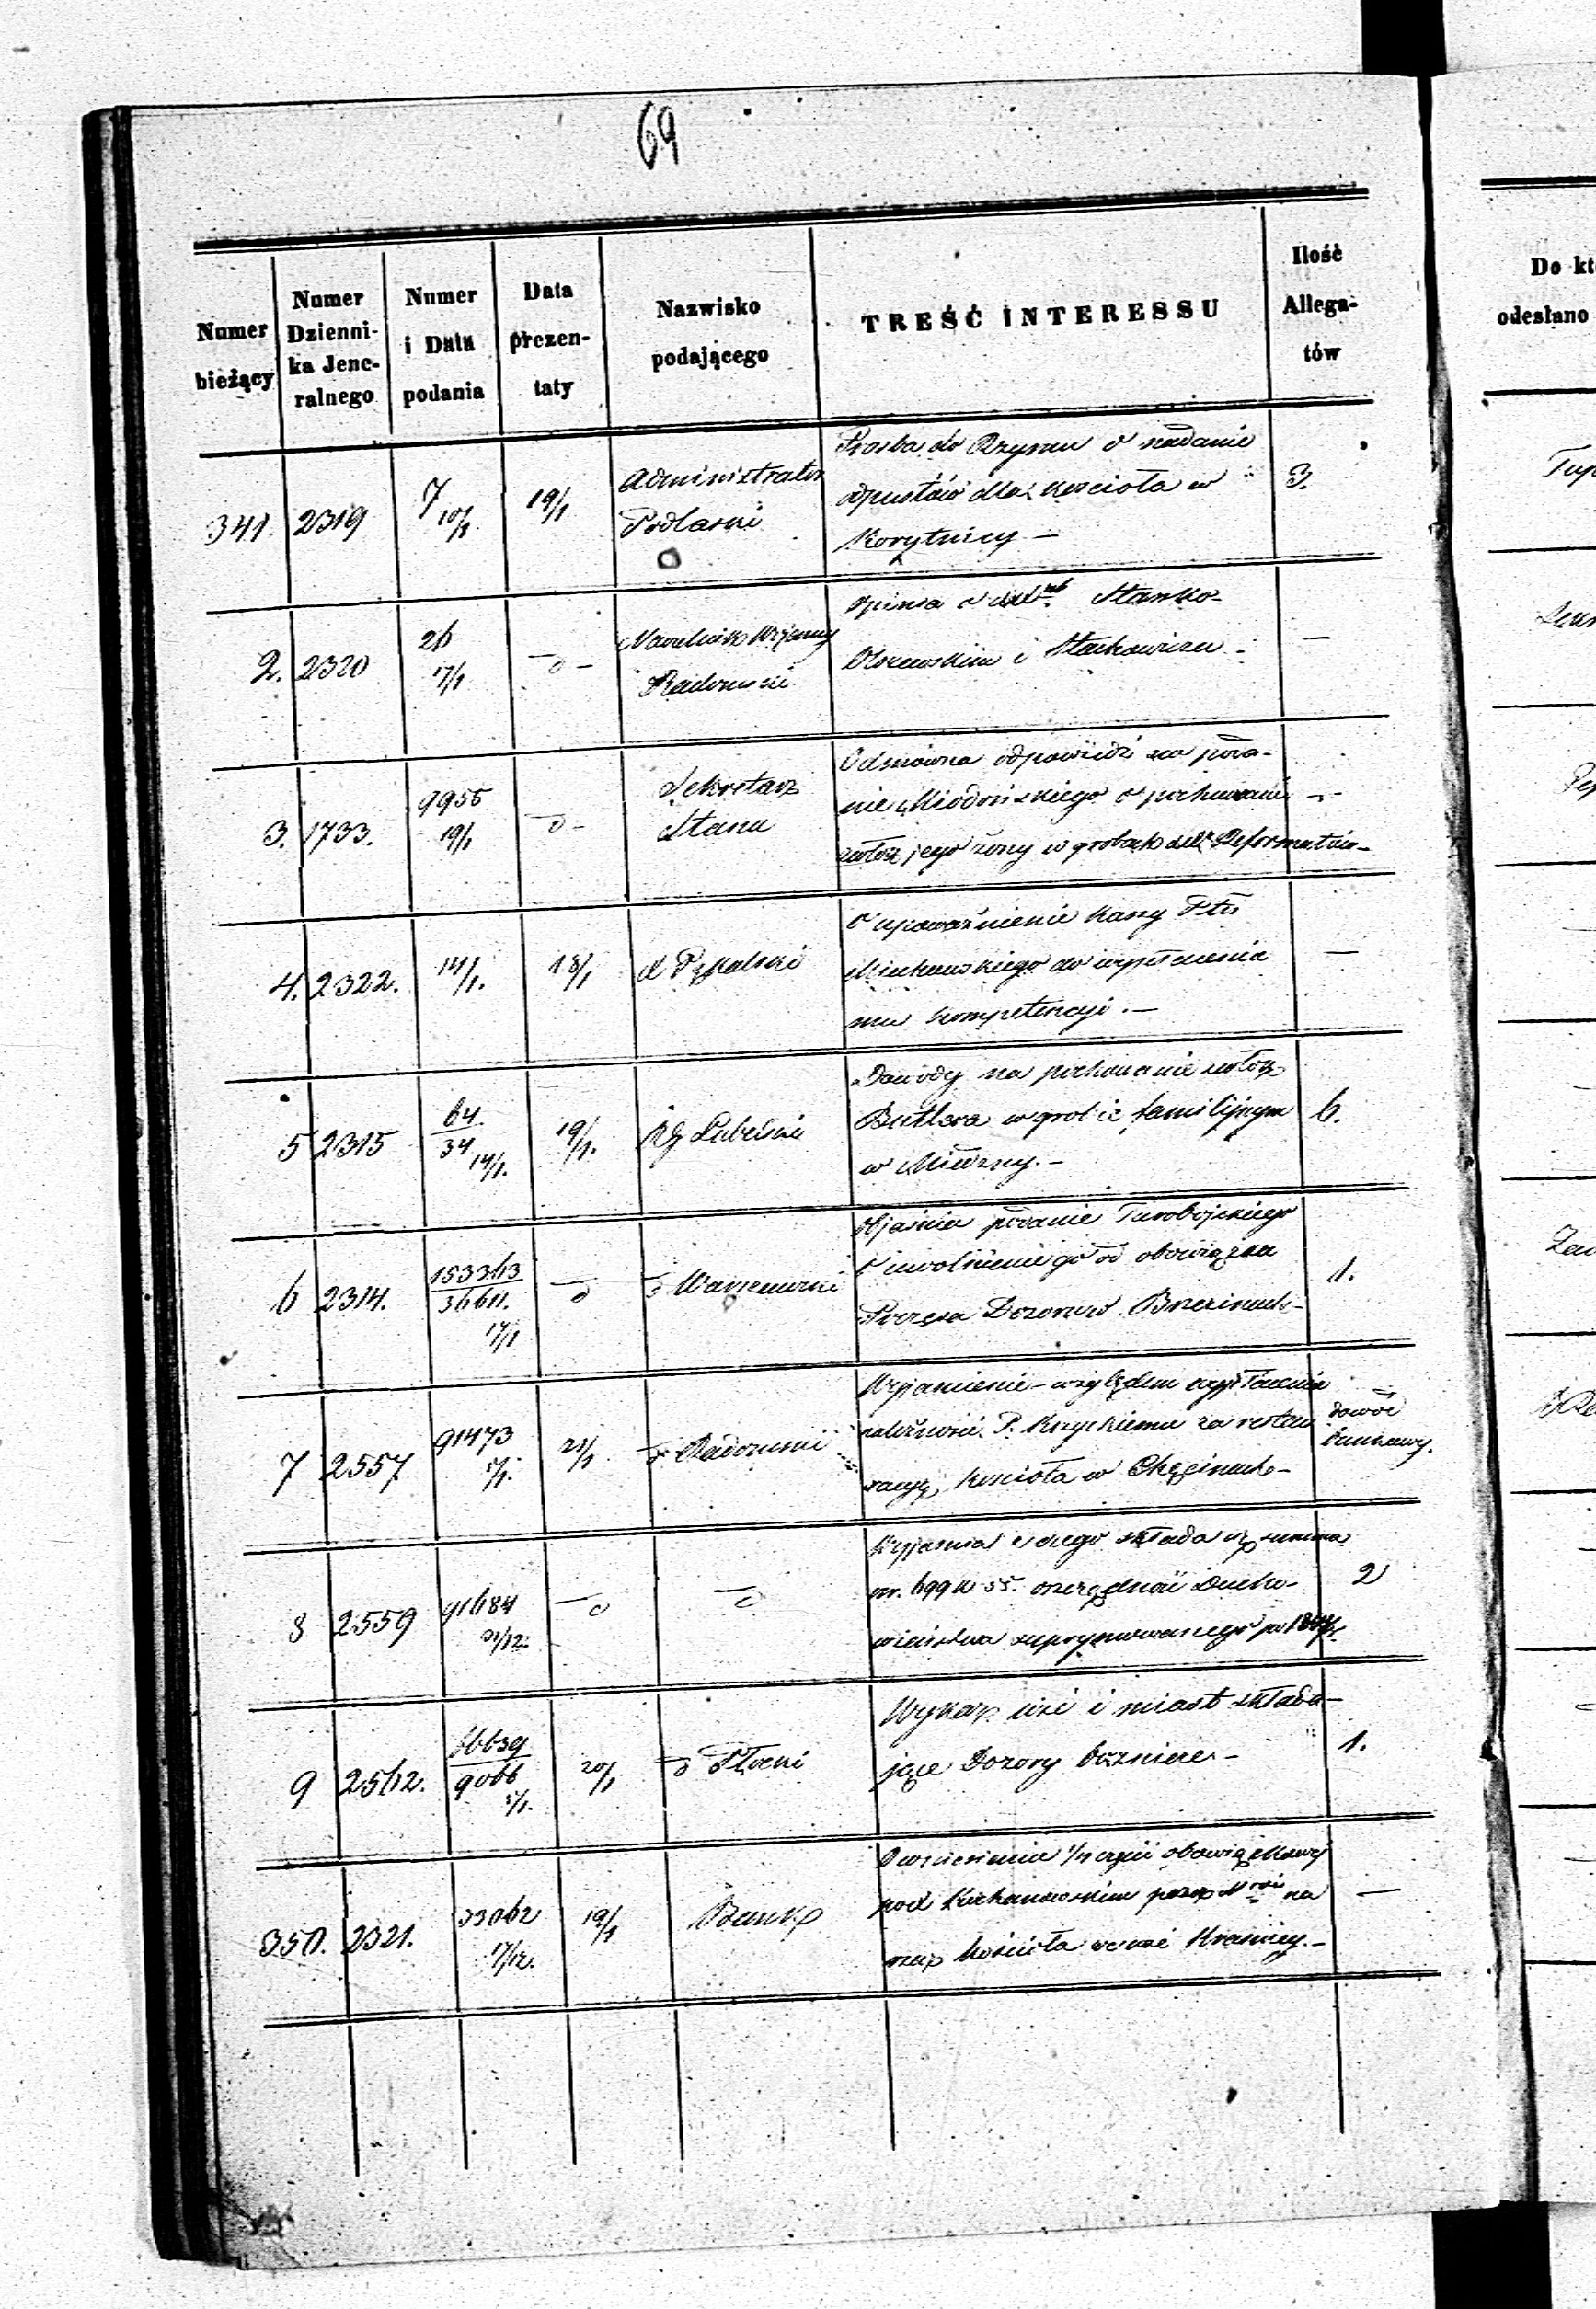 69
Numer bieżący
Numer Dzienni- ka Jene- ralnego
Numer i Data podania
Data prezen- taty
Nazwisko podającego
TREŚĆ INTERESSU
Ilość Allega- tów
Do kt
odesłano
341. 2319 7 10/1 19/1 Administrator Podlaski
Prosba do Rzymu o nadanie
odpustów dla kościoła w
Korytnicy —
3.
2. 2320 26 17/1 — d — Naczelnik Wojenny Radomski
Opinia o
Olszewskim i Stachowiczu —
—
3. 1733. 9955 19/1 — d — Sekretarz Stanu
Odmówna odpowiedź na poda-
nie Miodońskiego o pochowanie
zwłok jego żony w grobach Reformatów —
—
4. 2322. 14/1. 18/1 X Pękalski
O upoważnienie Kassy Ptu
Miechowskiego do wypłacenia
mu kompetencyi. —
—
5 2315 64 34 14/1. 19/1. Lubelski
Dowody na pochowanie zwłok
Butlera w grobie familijnym
w —
6.
6 2314. 36611. 17/1 — d d Warszawski
Objaśnia podanie Turobojskiego
o uwolnienie go od obowiązku
Prezesa Dozoru w Brzezinach —
1.
7 2557 91473 5/1. 21/1 d Radomski
Wyjaśnienie względem wypłacenia
należności P. Krzyckiemu za restau
racyę kościoła w Chęcinach —
dowód
8 2559 91684 31/12. — d — d
Wyjaśnia z czego składa się summa
rs. 699 k 55. oszczędność Ducho-
wieństwa supprymowanego
2
9 2562. 66639 9066 5/1. 20/1 d Płocki
Wykaz wsi i miast składa-
jące Dozory bóżnicze —
1.
350. 2321. 33062 17/12. 19/1 Bank
Doniesienie części obowiązkowej
pod Kochanowskim przez na
rzecz kościoła we wsi Krasnicy. —
—